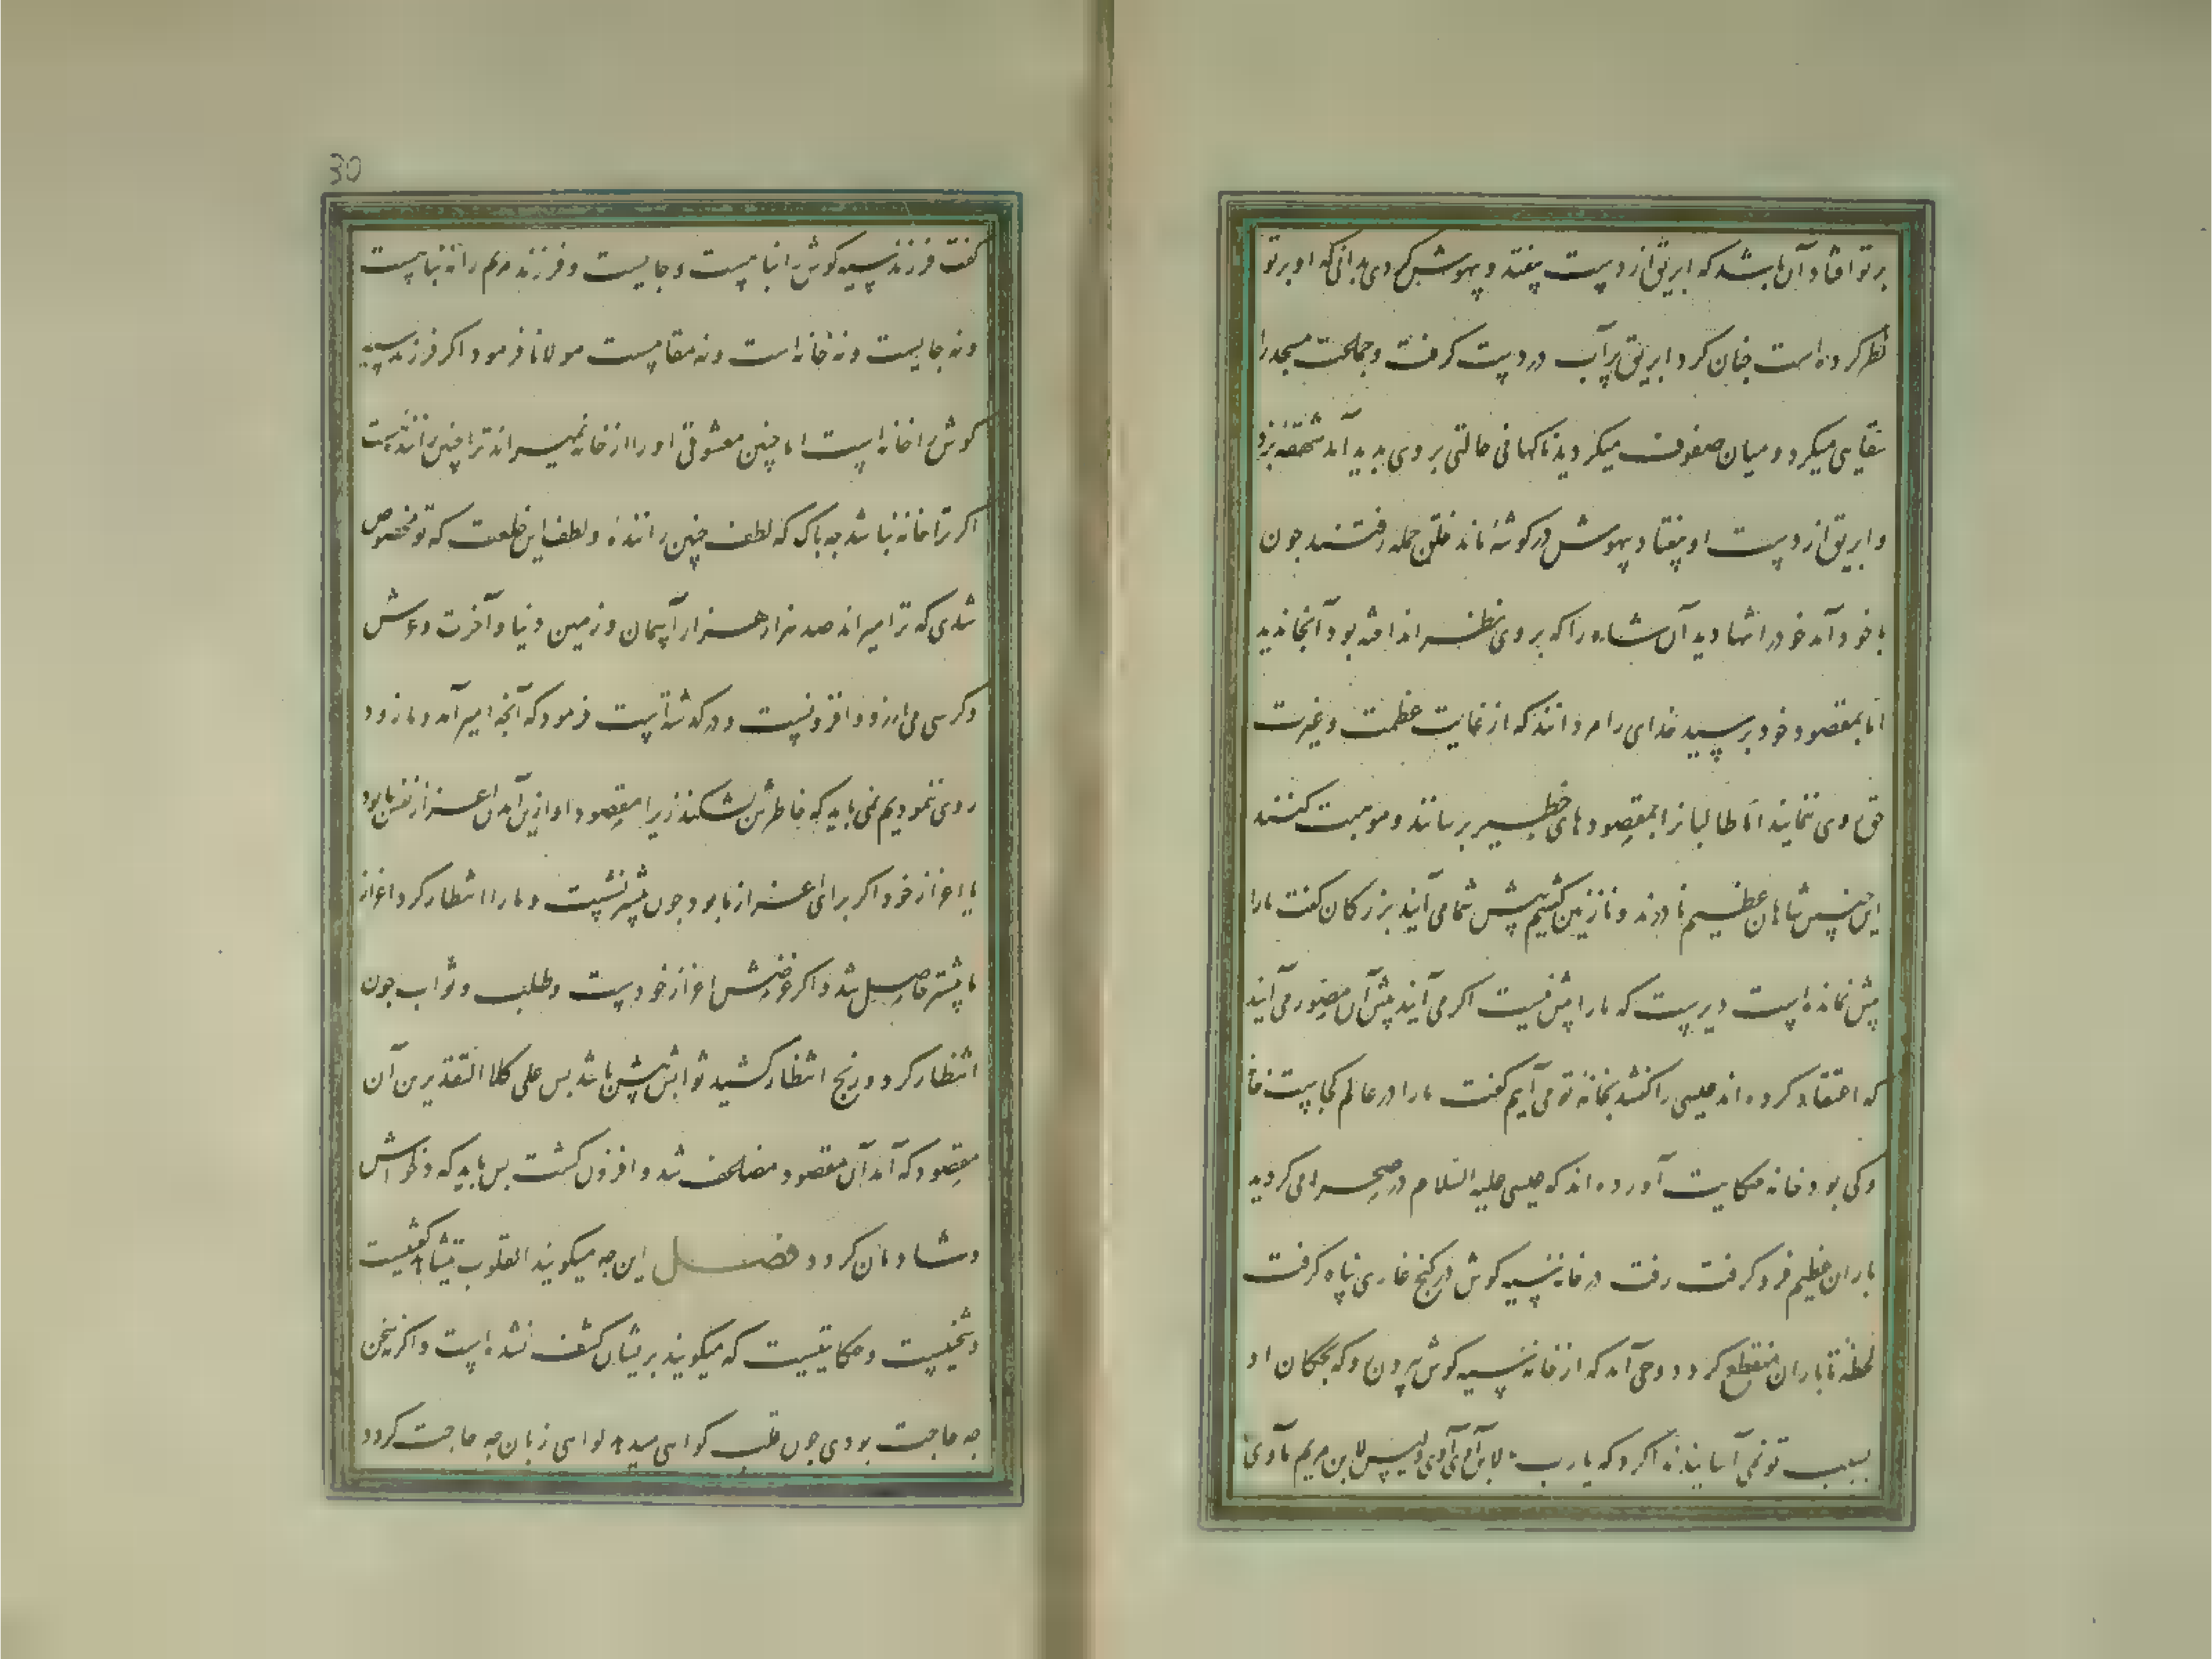 بر تو افتاد آن باشد که ابریق از دست بیفتد و بیهوش گردی بدانی که او بر تو
نظر کرده است چنان کرد ابریق پر آب در دست گرفت و جماعت مسجد را
سقایی میکرد و میان صفوف میکردید ناکهانی حالتی بر وی بدید آمد شهقه بزد
و ابریق از دست او بیفتاد بیهوش در کوشه ماند خلق جمله رفتند چون
با خود آمد خود را تنها دید آن شاه را که بر وی نظر انداخته بود آنجا ندید
اما بمقصود خود برسید خدای را مردانند که از غایت عظمت و غیرت
حق روی ننمایند اما طالبان را بمقصودهای خطیر برسانند و موهبت کنند
این چنین شاهان عظیم نادرند و نازنین کفتیم پیش شما می آیند بزرکان کفت ما را
پیش نمانده است دیرست که ما را پیش نیست اکر می آیند پیش آن مصور می آیند
که اعتقاد کرده اند عیسی را کفتند بخانه تو می آییم کفت ما را در عالم کجاست خانه
و کی بود خانه حکایت آورده اند که عیسی علیه السلام در صحرا می کردید
باران عظیم فرو کرفت رفت در خانه سیه کوش در کنج غاری پناه کرفت
لحظه تا باران منقطع کردد وحی آمد که از خانه سیه کوش بیرون رو که بچکان او
بسبب تو نمی آسایند ندا کرد که یا رب لابن آوی مأوی ولیس لابن مریم مأوی
30
کفت فرزند سیه کوش را پناهست و جایست و فرزند مریم را نه پناهست
و نه جایست و نه خانه است و نه مقامست مولانا فرمود اکر فرزند سیه
کوش را خانه است اما چنین معشوقی او را از خانه نمیراند ترا چنین راننده هست
اکر ترا خانه نباشد چه باک که لطف چنین راننده و لطف این خلعت که تو مخصوص
شدی که ترا میراند صد هزار هزار آسمان و زمین و دنیا و آخرت و عرش
و کرسی می ارزد و افزونست و در کذشته است فرمود که آنچه امیر آمد و ما زود
روی ننمودیم نمی باید که خاطرش بشکند زیرا مقصود او ازین آمدن اعزاز نفس ما بود
یا اعزاز خود اکر برای اعزاز ما بود چون بیشتر نشست و ما را انتظار کرد اعزاز
ما بیشتر حاصل شد و اکر غرضش اعزاز خودست و طلب و ثواب چون
انتظار کرد و رنج انتظار کشید ثوابش بیش باشد بس علی کلا التقدیرین آن
مقصود که آمد آن مقصود مضاعف شد و افزون کشت بس باید که دلخوش
و شادمان کردد فصل این چه میکویند القلوب تتشاهد کفتیست
و سخنیست و حکایتیست که میکویند بریشان کشف نشده است و اکر نی سخن
چه حاجت بودی چون قلب کواهی میدهد کواهی زبان چه حاجت کردد